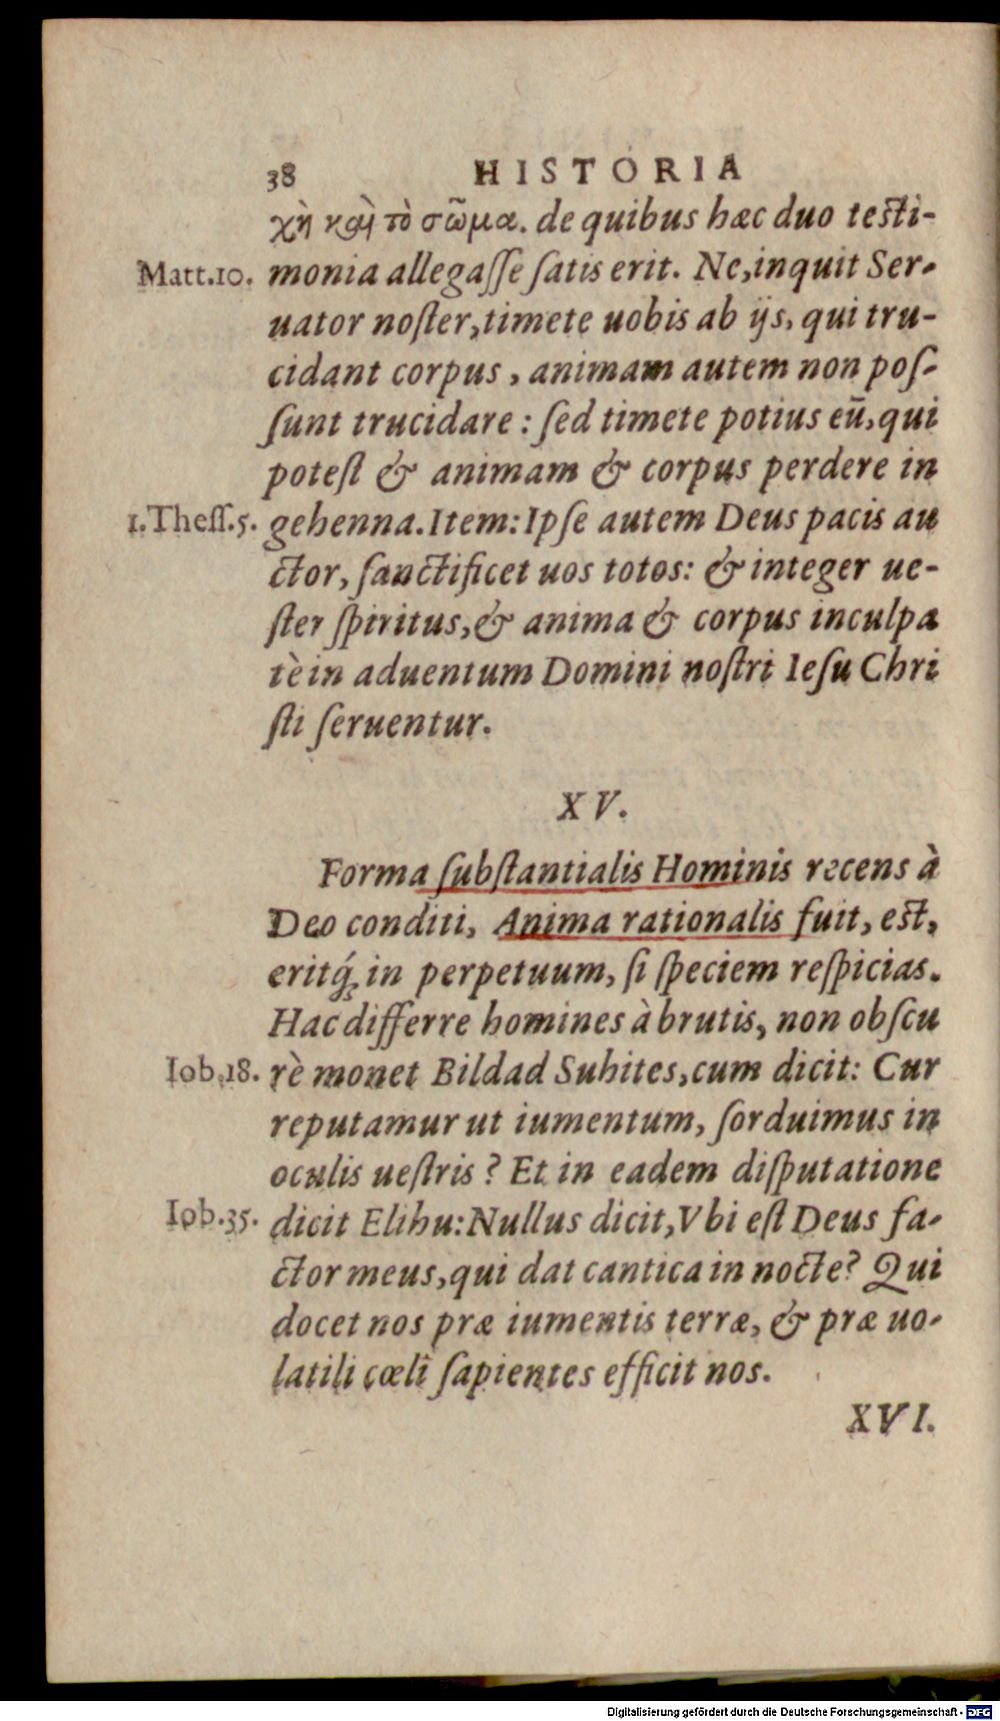 38 HISTORIA
χὴ καὶ τὸ σῶμα. de quibus hæc duo testi-
Matt.10. monia allegaſſe ſatis erit. Ne,inquit Ser-
uator noſter,timete uobis ab ijs, qui tru-
cidant corpus, animam autem non poſ-
ſunt trucidare: ſed timete potius eū,qui
poteſt & animam & corpus perdere in
1.Theſſ.5. gehenna.Item:Ipſe autem Deus pacis au
ctor, ſanctificet uos totos: & integer ue-
ſter ſpiritus,& anima & corpus inculpa
tè in aduentum Domini noſtri Ieſu Chri
ſti ſeruentur.
XV.
Forma ſubſtantialis Hominis recens à
Deo conditi, Anima rationalis fuit, est,
eritq́; in perpetuum, ſi ſpeciem reſpicias.
Hac differre homines à brutis, non obſcu
Iob.18. rè monet Bildad Suhites,cum dicit: Cur
reputamur ut iumentum, ſorduimus in
oculis ueſtris? Et in eadem diſputatione
Iob.35. dicit Elihu:Nullus dicit,Vbi eſt Deus fa-
ctor meus,qui dat cantica in nocte? Qui
docet nos præ iumentis terræ, & præ uo-
latili cœli ſapientes efficit nos.
XVI.
Digitalisierung gefördert durch die Deutsche Forschungsgemeinschaft - DFG